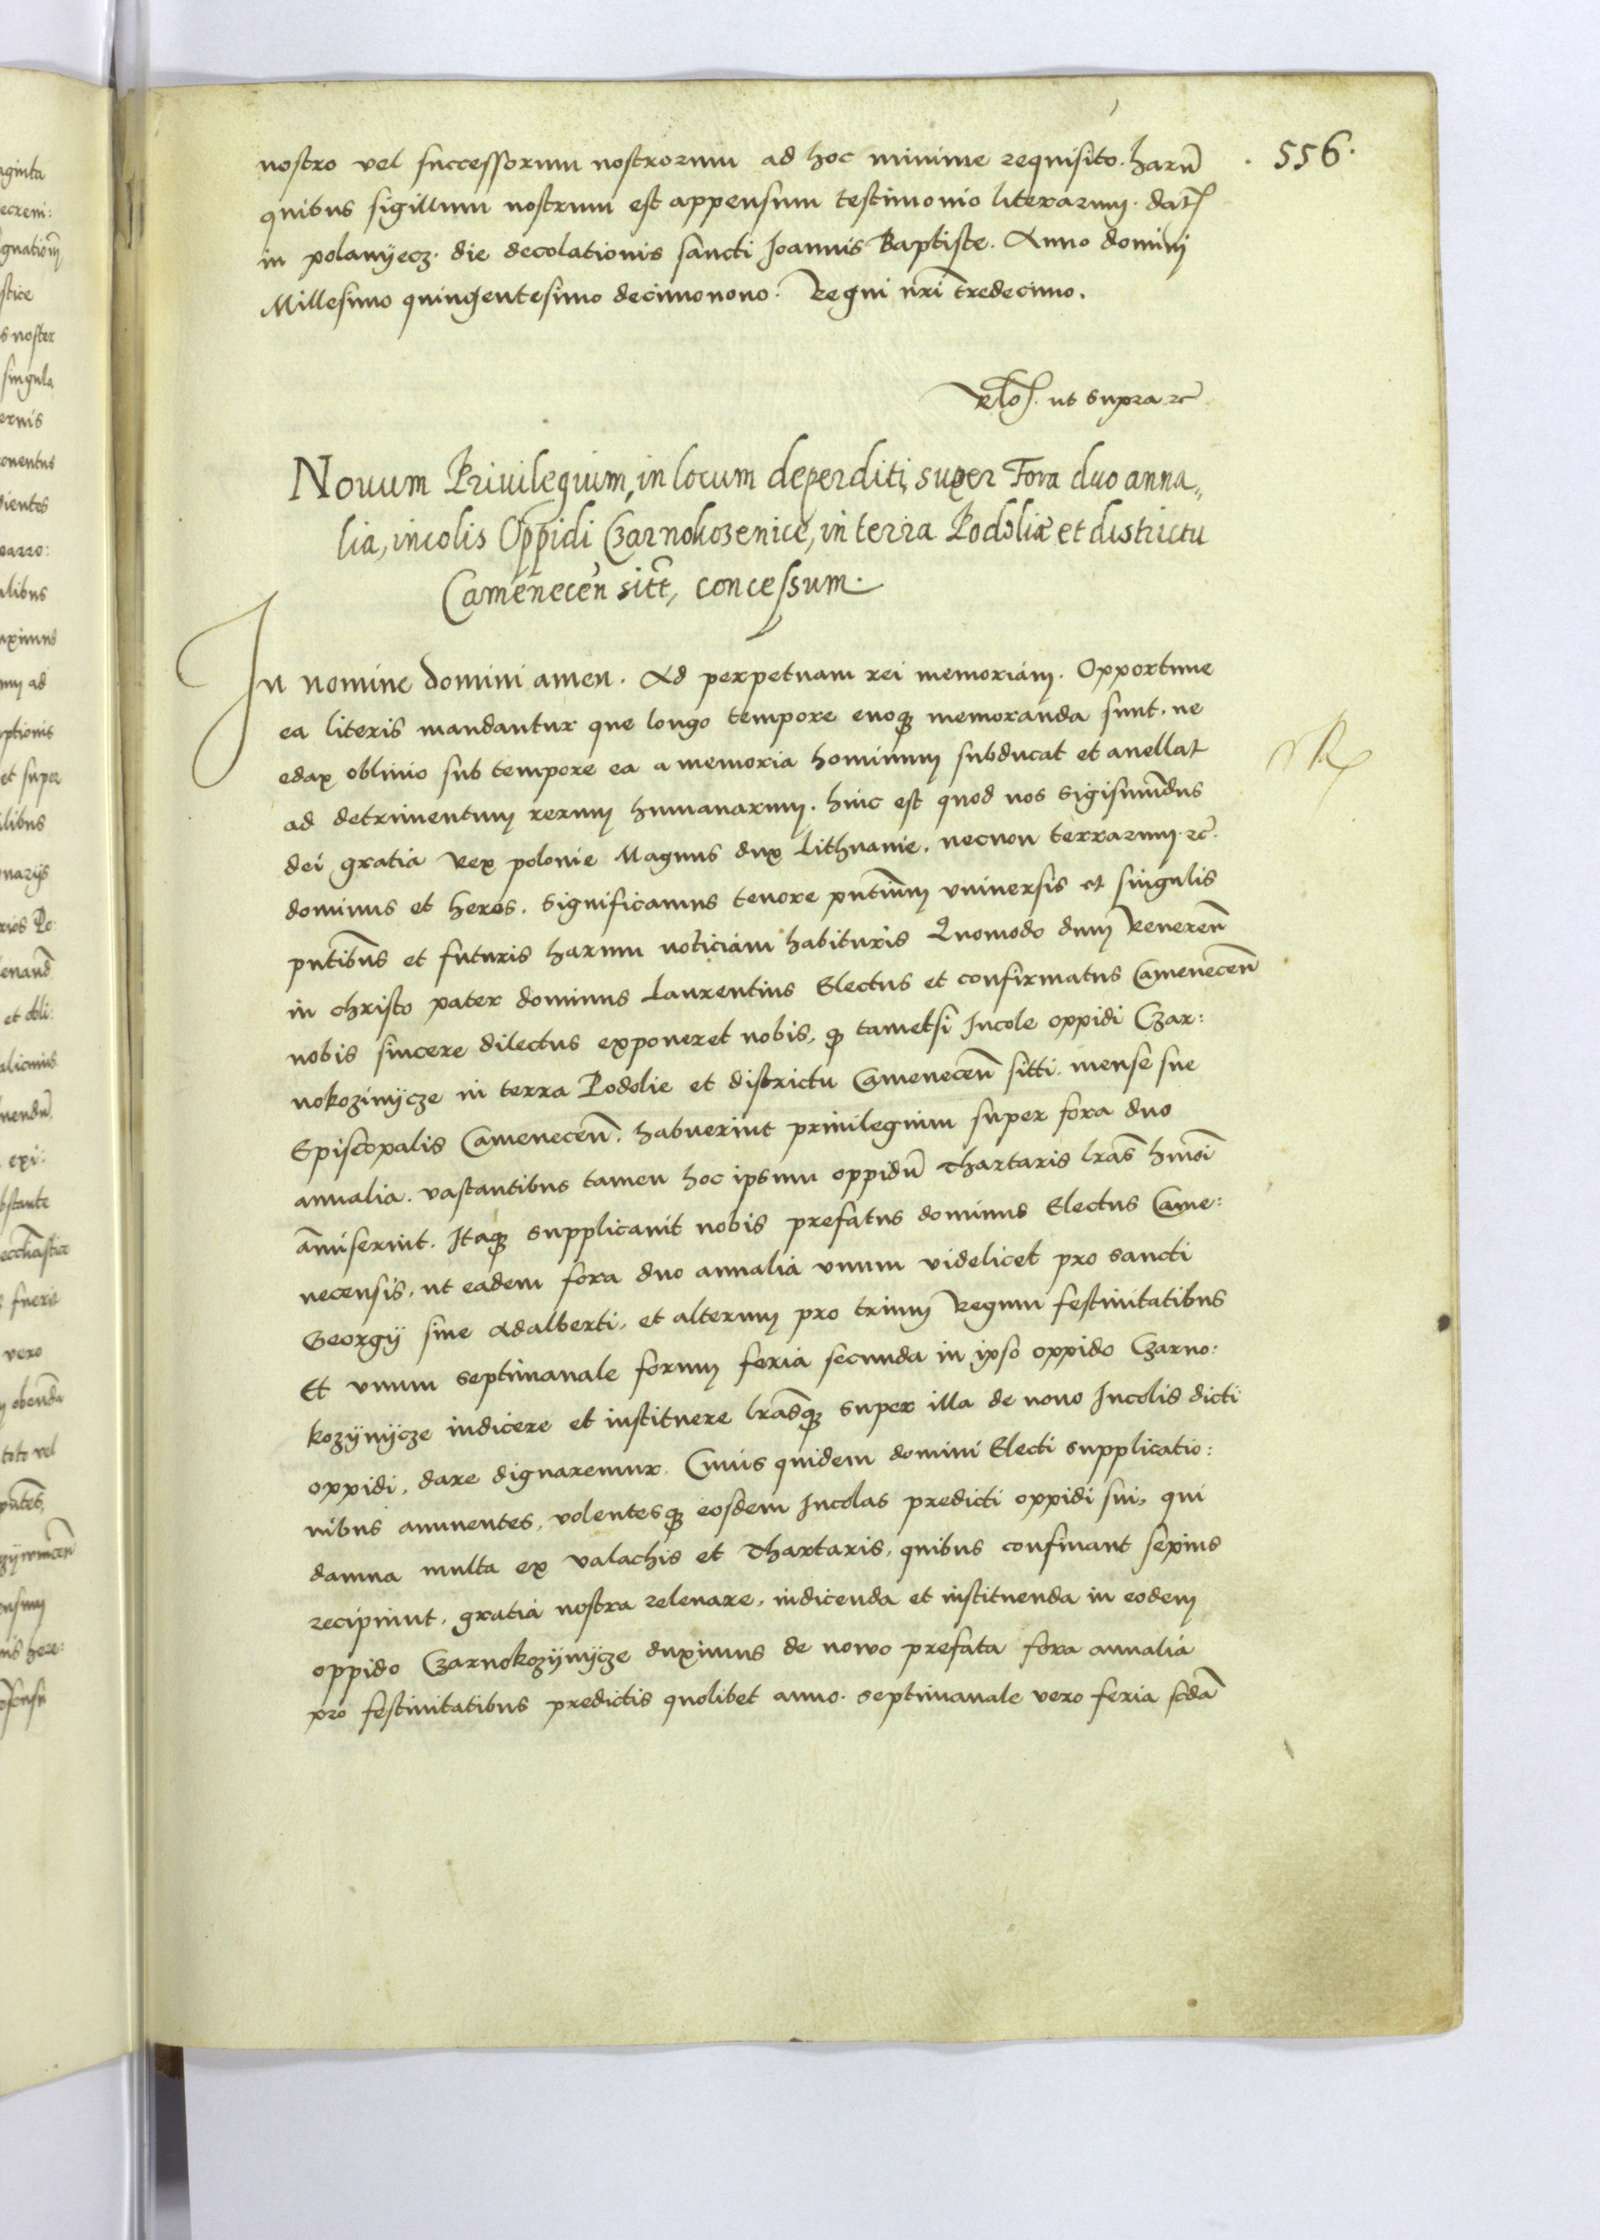 nostro vel successorum nostrorum ad hoc minime requisito. harũ
. 556.
quibus sigillum nostrum est appensum testimonio literarum. dat
in polanyecz. die decolationis sancti Joannis Baptiste. Anno domini
Millesimo quingentesimo decimonono. Regni nr̃i tredecimo.
ut supra rc̃
Novum Privilegium, in locum deperditi, super Fora duo anna„
lia, incolis Oppidi Czarnokozenice, in terra Podoliæ et districtu
Camenecen̄ sitt̃, concessum.
In nomine domini amen. Ad perpetuam rei memoriam. Opportune
ea literis mandantur que longo tempore euoq̃ memoranda sunt, ne
edax obliuio sub tempore ea a memoria hominum subducat et auellat
ad detrimentum rerum humanarum. hinc est quod nos Sigismũdus
dei gratia Rex polonie Magnus dux Lithuanie, necnon terrarum. rc̃.
dominus et heres. Significamus tenore pñtium vniuersis et singulis
pñtibus et futuris harum noticiam habituris Quomodo dum Reueren̄
in christo pater dominus Laurentius Electus et confirmatus Camenecen̄
nobis sincere dilectus exponeret nobis, q̃ tametsi Incole oppidi Czar:
nokozinycze in terra Podolie et districtu Camenecen̄ sitti. mense sue
Episcopalis Camenecen̄. habuerint priuilegium super fora duo
annalia. vastantibus tamen hoc ipsum oppidũ Thartaris lr̃as hm̃oi
amiserint. Itaq̃ supplicauit nobis prefatus dominus Electus Came:
necensis, ut eadem fora duo annalia vnum videlicet pro sancti
Georgÿ siue Adalberti, et alterum pro trium Regum festiuitatibus
Et vnum septimanale forum feria secunda in ipso oppido Czarno:
kozÿnÿcze indicere et instituere lr̃asq̃ super illa de nouo Incolis dicti
oppidi, dare dignaremur. Cuius quidem domini Electi supplicatio:
nibus annuentes, volentesq̃ eosdem Incolas predicti oppidi sui, qui
damna multa ex valachis et Thartaris, quibus confinant sepius
recipiunt, gratia nostra releuare, indicenda et instituenda in eodem
oppido Czarnokozÿnÿcze duximus de nowo prefata fora annalia
pro festiuitatibus predictis quolibet anno. septimanale vero feria scd̃a